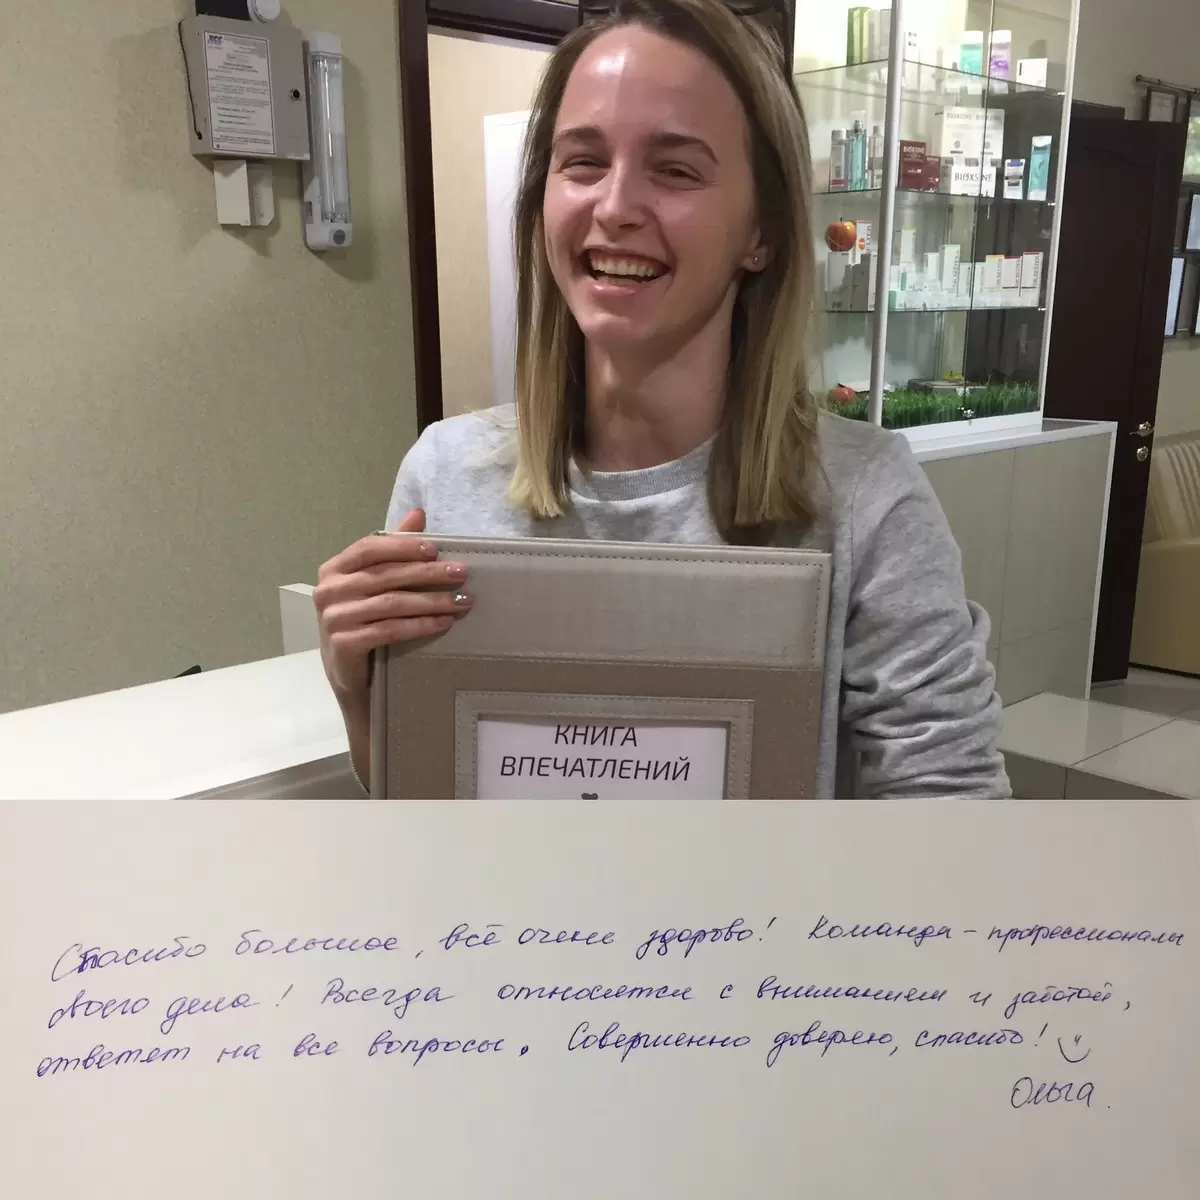 BIOXSINE BIOXSINE
BIOXSINE
BIOXSINE
КНИГА
ВПЕЧАТЛЕНИЙ
Спасибо большое, всё очень здорово! Команда - профессионалы
своего дела! Всегда относятся с вниманием и заботой,
ответят на все вопросы. Совершенно доверяю, спасибо!
Ольга.